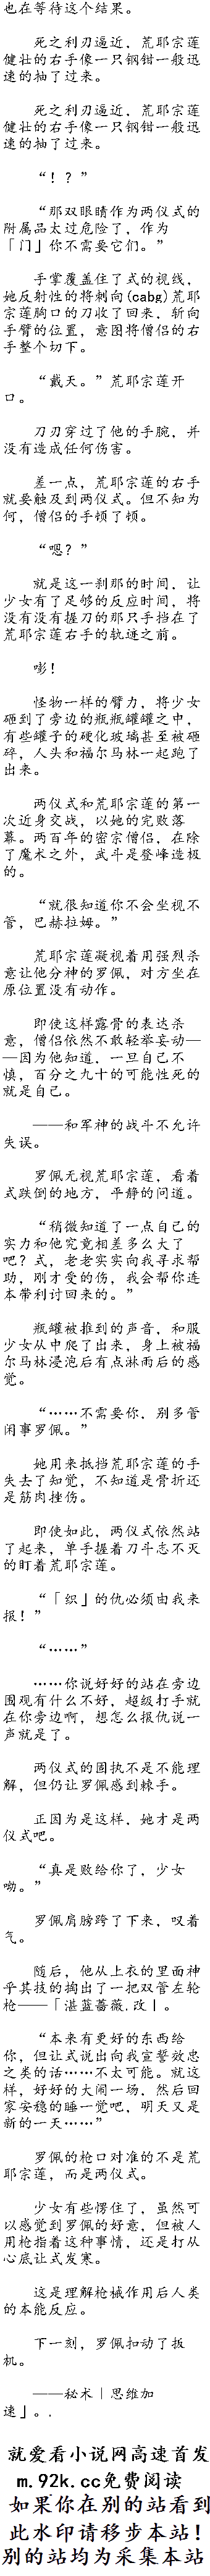 也在等待这个结果。
死之利刃逼近，荒耶宗莲
健壮的右手像一只钢钳一般迅
速的抽了过来。
死之利刃逼近，荒耶宗莲
健壮的右手像一只钢钳一般迅
速的抽了过来。
“！？”
“那双眼睛作为两仪式的
附属品太过危险了，作为
「门」你不需要它们。”
手掌覆盖住了式的视线，
她反射性的将刺向(cabg)荒耶
宗莲胸口的刀收了回来，斩向
手臂的位置，意图将僧侣的右
手整个切下。
“戴天。”荒耶宗莲开
口。
刀刃穿过了他的手腕，并
没有造成任何伤害。
差一点，荒耶宗莲的右手
就要触及到两仪式。但不知为
何，僧侣的手顿了顿。
“嗯？”
就是这一刹那的时间，让
少女有了足够的反应时间，将
没有没有握刀的那只手挡在了
荒耶宗莲右手的轨迹之前。
嘭！
怪物一样的臂力，将少女
砸到了旁边的瓶瓶罐罐之中，
有些罐子的硬化玻璃甚至被砸
碎，人头和福尔马林一起跑了
出来。
两仪式和荒耶宗莲的第一
次近身交战，以她的完败落
幕。两百年的密宗僧侣，在除
了魔术之外，武斗是登峰造极
的。
“就很知道你不会坐视不
管，巴赫拉姆。”
荒耶宗莲凝视着用强烈杀
意让他分神的罗佩，对方坐在
原位置没有动作。
即使这样露骨的表达杀
意，僧侣依然不敢轻举妄动—
—因为他知道，一旦自己不
慎，百分之九十的可能性死的
就是自己。
——和军神的战斗不允许
失误。
罗佩无视荒耶宗莲，看着
式跌倒的地方，平静的问道。
“稍微知道了一点自己的
实力和他究竟相差多么大了
吧？式，老老实实向我寻求帮
助，刚才受的伤，我会帮你连
本带利讨回来的。”
瓶罐被推到的声音，和服
少女从中爬了出来，身上被福
尔马林浸泡后有点淋雨后的感
觉。
“……不需要你，别多管
闲事罗佩。”
她用来抵挡荒耶宗莲的手
失去了知觉，不知道是骨折还
是筋肉挫伤。
即使如此，两仪式依然站
了起来，单手握着刀斗志不灭
的盯着荒耶宗莲。
“「织」的仇必须由我来
报！”
“……”
……你说好好的站在旁边
围观有什么不好，超级打手就
在你旁边啊，想怎么报仇说一
声就是了。
两仪式的固执不是不能理
解，但仍让罗佩感到棘手。
正因为是这样，她才是两
仪式吧。
“真是败给你了，少女
呦。”
罗佩肩膀跨了下来，叹着
气。
随后，他从上衣的里面神
乎其技的掏出了一把双管左轮
枪——「湛蓝蔷薇.改」。
“本来有更好的东西给
你，但让式说出向我宣誓效忠
之类的话……不太可能。就这
样，好好的大闹一场，然后回
家安稳的睡一觉吧，明天又是
新的一天……”
罗佩的枪口对准的不是荒
耶宗莲，而是两仪式。
少女有些愣住了，虽然可
以感觉到罗佩的好意，但被人
用枪指着这种事情，还是打从
心底让式发寒。
这是理解枪械作用后人类
的本能反应。
下一刻，罗佩扣动了扳
机。
——秘术「思维加
速」。.
就爱看小说网高速首发
m.92k.cc免费阅读
如果你在别的站看到
此水印请移步本站！
别的站均为采集本站